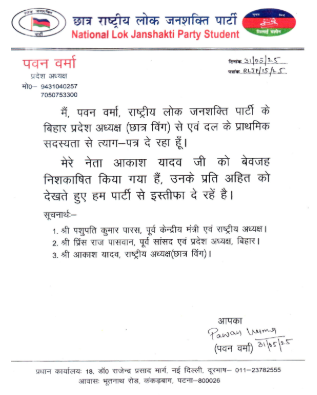 छात्र राष्ट्रीय लोक जनशक्ति पार्टी
National Lok Janshakti Party Student
पवन वर्मा
प्रदेश अध्यक्ष
मो०- 9431040257
7050753300
दिनांक 31/05/25
पत्रांक
मैं, पवन वर्मा, राष्ट्रीय लोक जनशक्ति पार्टी के
बिहार प्रदेश अध्यक्ष (छात्र विंग) से एवं दल के प्राथमिक
सदस्यता से त्याग-पत्र दे रहा हूँ।
मेरे नेता आकाश यादव जी को बेवजह
निशकाषित किया गया हैं, उनके प्रति अहित को
देखते हुए हम पार्टी से इस्तीफा दे रहें है।
सूचनार्थः-
1. श्री पशुपति कुमार पारस, पूर्व केन्द्रीय मंत्री एवं राष्ट्रीय अध्यक्ष।
2. श्री प्रिंस राज पासवान, पूर्व सांसद एवं प्रदेश अध्यक्ष, बिहार।
3. श्री आकाश यादव, राष्ट्रीय अध्यक्ष(छात्र विंग)।
आपका
Pawan Verma
(पवन वर्मा) 31/05/25
प्रधान कार्यालयः 18, डॉ० राजेन्द्र प्रसाद मार्ग, नई दिल्ली, दूरभाष- 011-23782555
आवासः भूतनाथ रोड, कंकड़बाग, पटना-800026